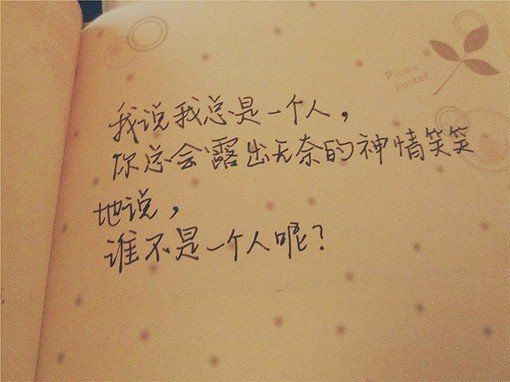 Picnic
pocket
我说我总是一个人，
你总会露出无奈的神情笑笑
地说，
谁不是一个人呢？